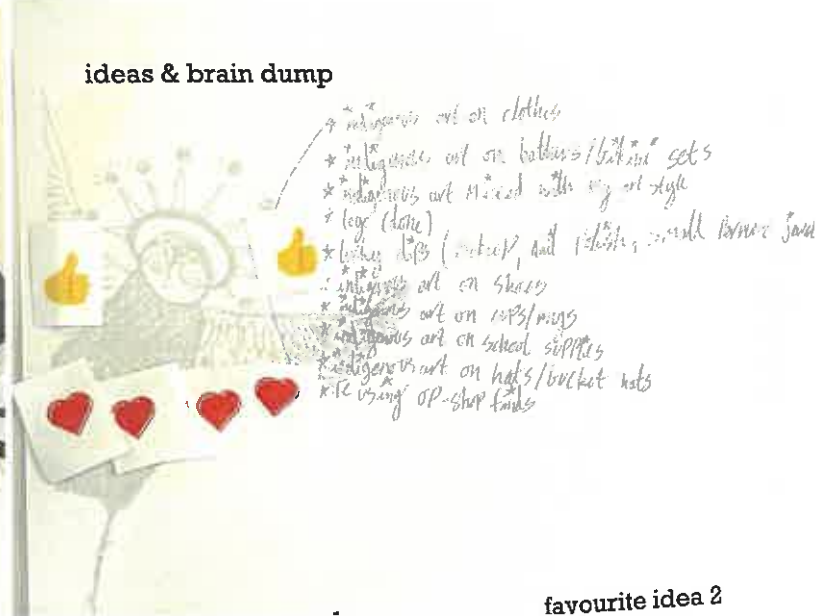 ideas & brain dump
* indigenous art on clothes
* indigenous art on bathers/bikini sets
* indigenous art mixed with my art style
* logo (done)
* lucky dips (makeup, nail polish, small
* indigenous art on shoes
* indigenous art on cups/mugs
* indigenous art on school supplies
* indigenous art on hats/bucket hats
* re using op-shop finds
favourite idea 2